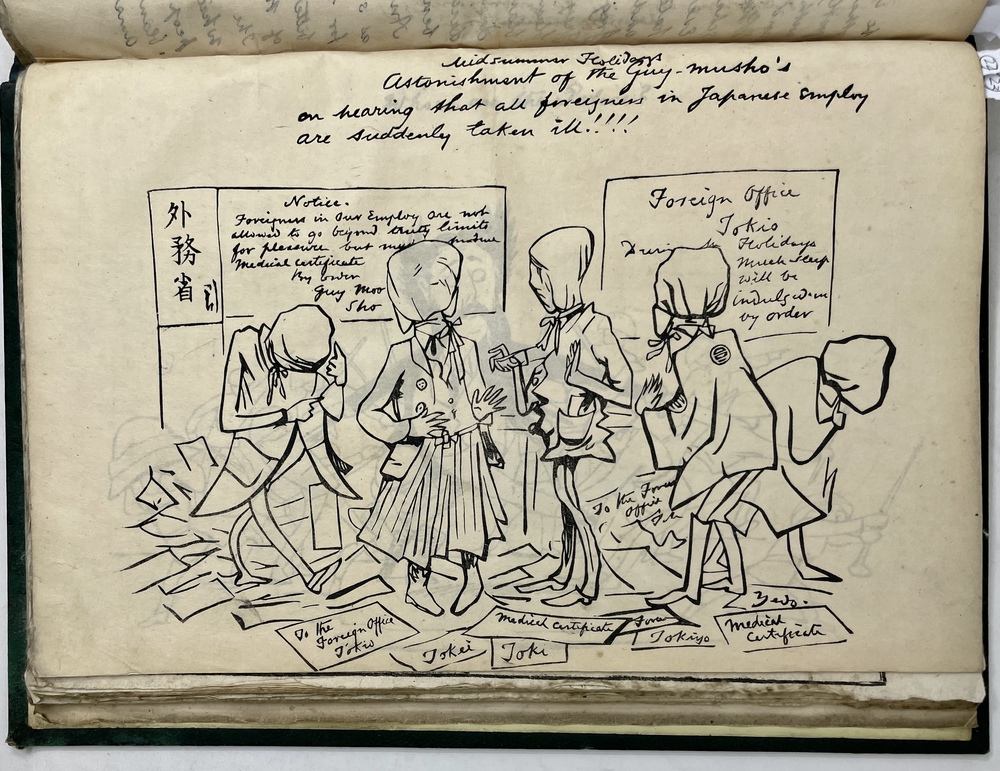 Midsummer Holidays
Astonishment of the Guy-musho's
on hearing that all foreigners in Japanese Employ
are suddenly taken ill!!!!
外務省
Notice.
Foreigners in Our Employ are not
allowed to go beyond treaty limits
for pleasure but produce
Medical certificate
By order
Guy Moo
Sho
Foreign Office
Tokio
During Holidays
Much sleep
will be
indulged in
by order
To the Foreign
Office
To the
Foreign Office
Tokio
Tokei
Medical certificate
Toki
Tokiyo
Yedo.
Medical
Certificate